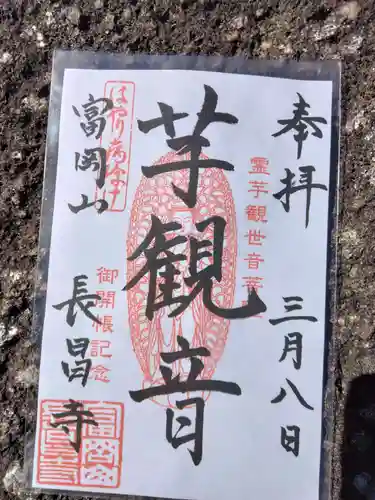 奉拝
三月八日
霊芋観世音菩
芋観音
御開帳記念
はやり病除け
富岡山
長昌寺